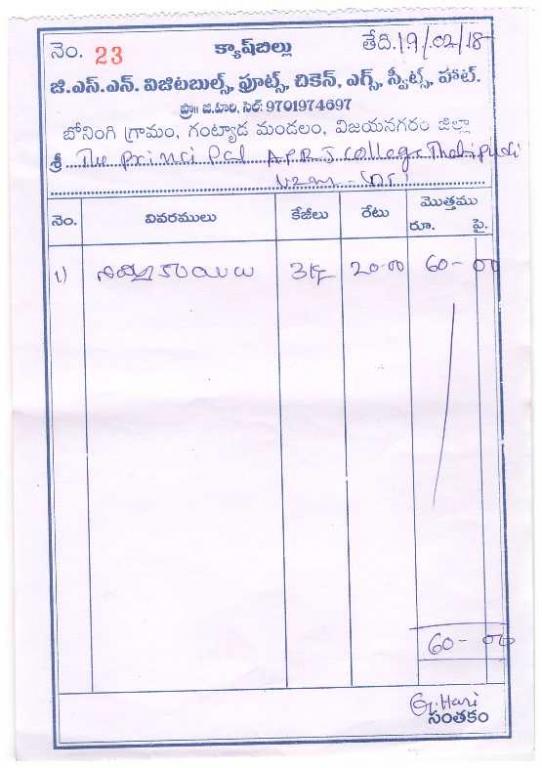 నెం. 23 క్యాష్‌బిల్లు తేది.19/02/18
జి.ఎస్.ఎన్. విజిటబుల్స్, ఫ్రూట్స్, చికెన్, ఎగ్స్, స్వీట్స్, హాట్.
ప్రొ॥ జి.హరి, సెల్: 9701974697
బోనంగి గ్రామం, గంట్యాడ మండలం, విజయనగరం జిల్లా
శ్రీ The Princi Pal A.P.R.J College Thatipudi
vzm - Dt
నెం. వివరములు కేజీలు రేటు మొత్తము
రూ. పై.
1) నిమ్మకాయలు 3kg 20-00 60-00
60-00
G.Hari
సంతకం